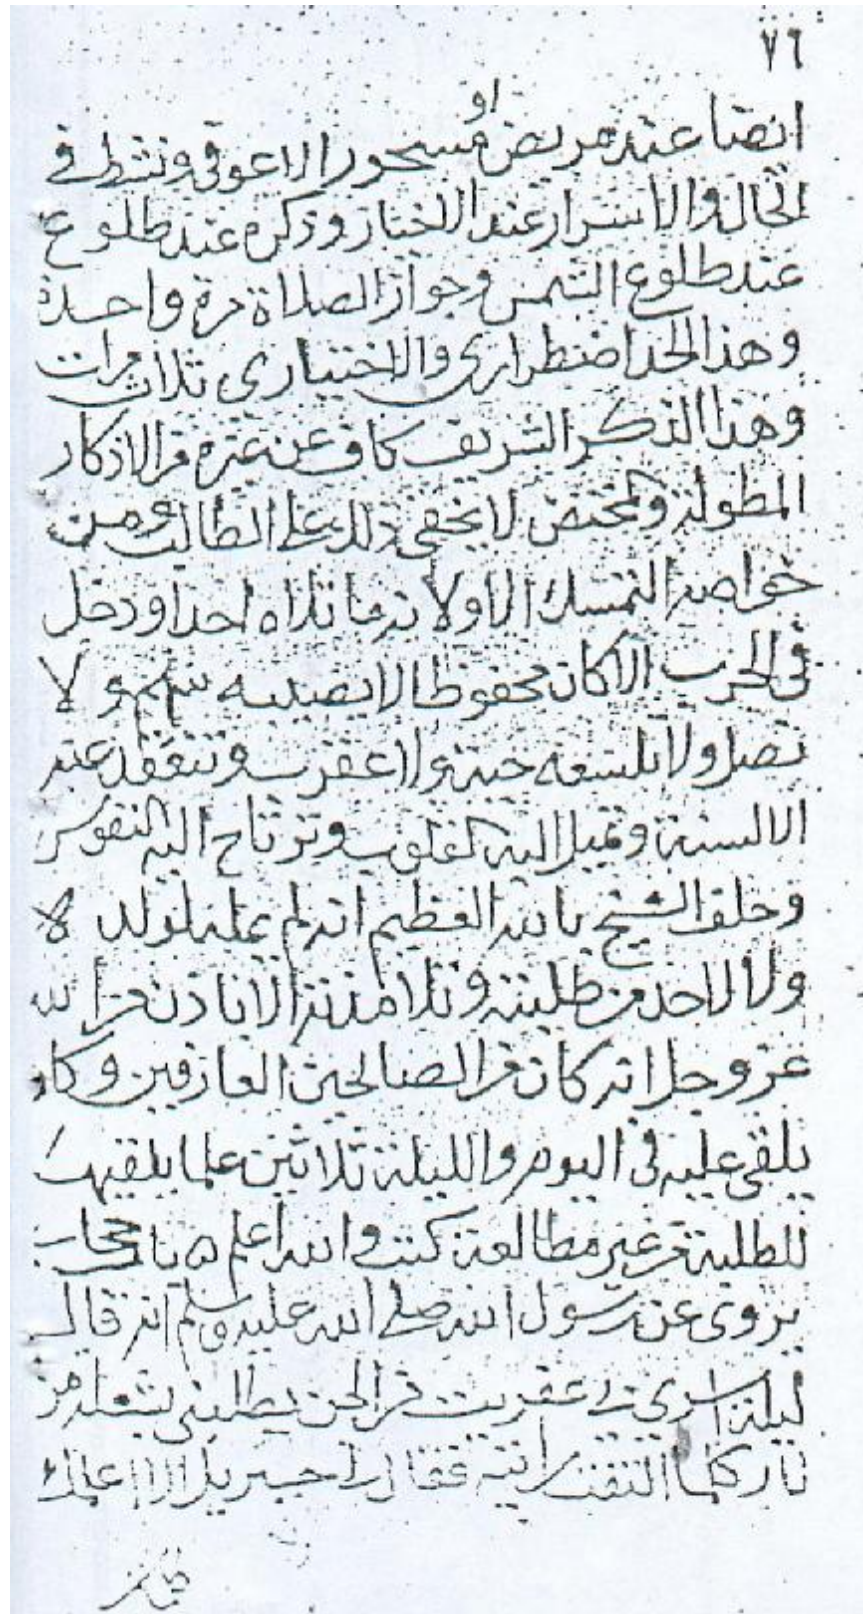 ٧٦
او
ايضا عند مريض مسحور الا عوفي ونشط في
الحال والاسرار عند الاختبار وذكره عند طلوع
عند طلوع الشمس وجواز الصلاة مرة واحدة
وهذا الحد اضطراري والاختياري ثلاث مرات
وهذا الذكر الشريف كاف عن غيره من الاذكار
المطولة والمختصر لا يخفى ذلك على الطالب ومن
خواصه التمسك الاولا نه ما تلاه احد اودخل
في الحرب الا كان محفوظا لا يصيبه سهم ولا
نصل ولا تلسعه حية ولا عقرب وتنعقد عنه
الالسنة وتميل اليه القلوب وترتاح اليه النفوس
وحلف الشيخ بالله العظيم انه لم يمله لولد لا
ولا لاحد من طلبته وتلامذته الا باذن من الله
عز وجل انه كان من الصالحين العارفين وكان
يلقى عليه في اليوم والليلة ثلاثين علما يلقيها
للطلبة من غير مطالعة كتب والله اعلم ٥ باب حجاب
يروى عن رسول الله صلى الله عليه وسلم انه قال
ليلة اسري بي عفريت من الجن يطلبني بشعلة من
نار كلما التفت رايته فقال لي جبريل الا اعلمك
كلمات